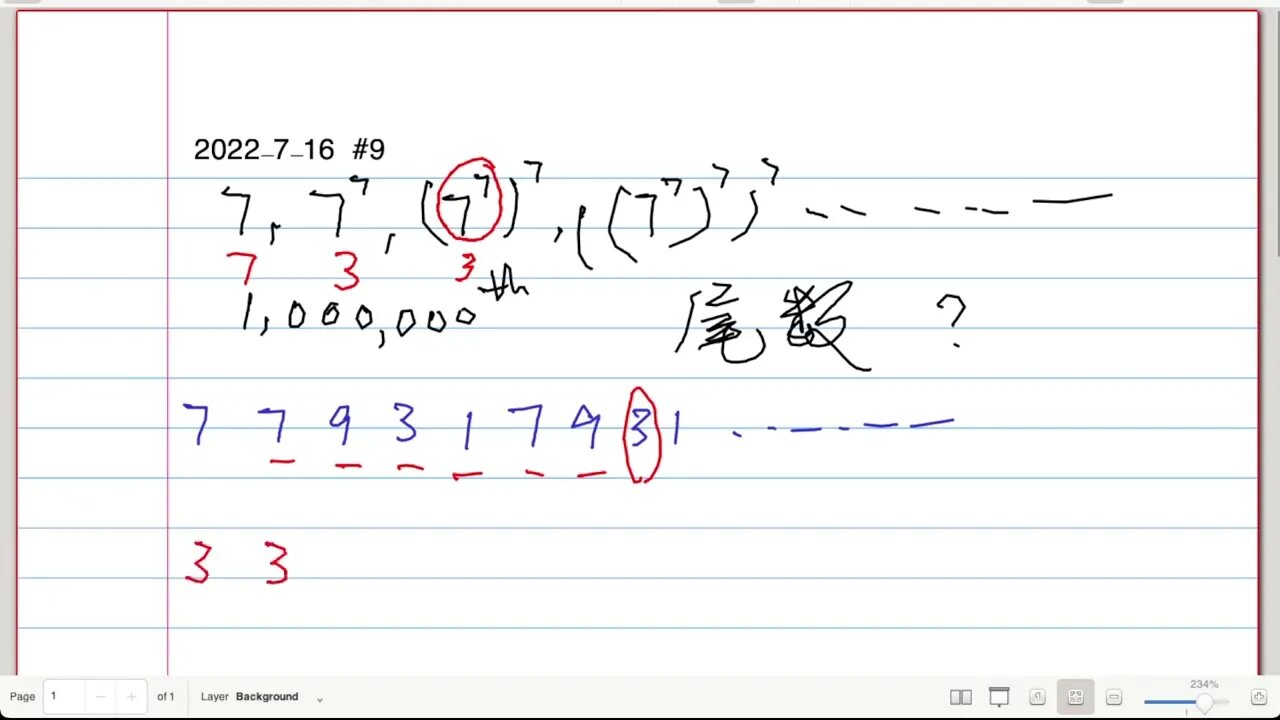 2022-7-16 #9
7, 7^7, (7^7)^7, ((7^7)^7)^7 -- -- -- —
7 3 3
1,000,000th 尾数 ?
7 7 9 3 1 7 9 3 1 . - - - - -
3 3
Page 1 of 1 Layer Background 234%